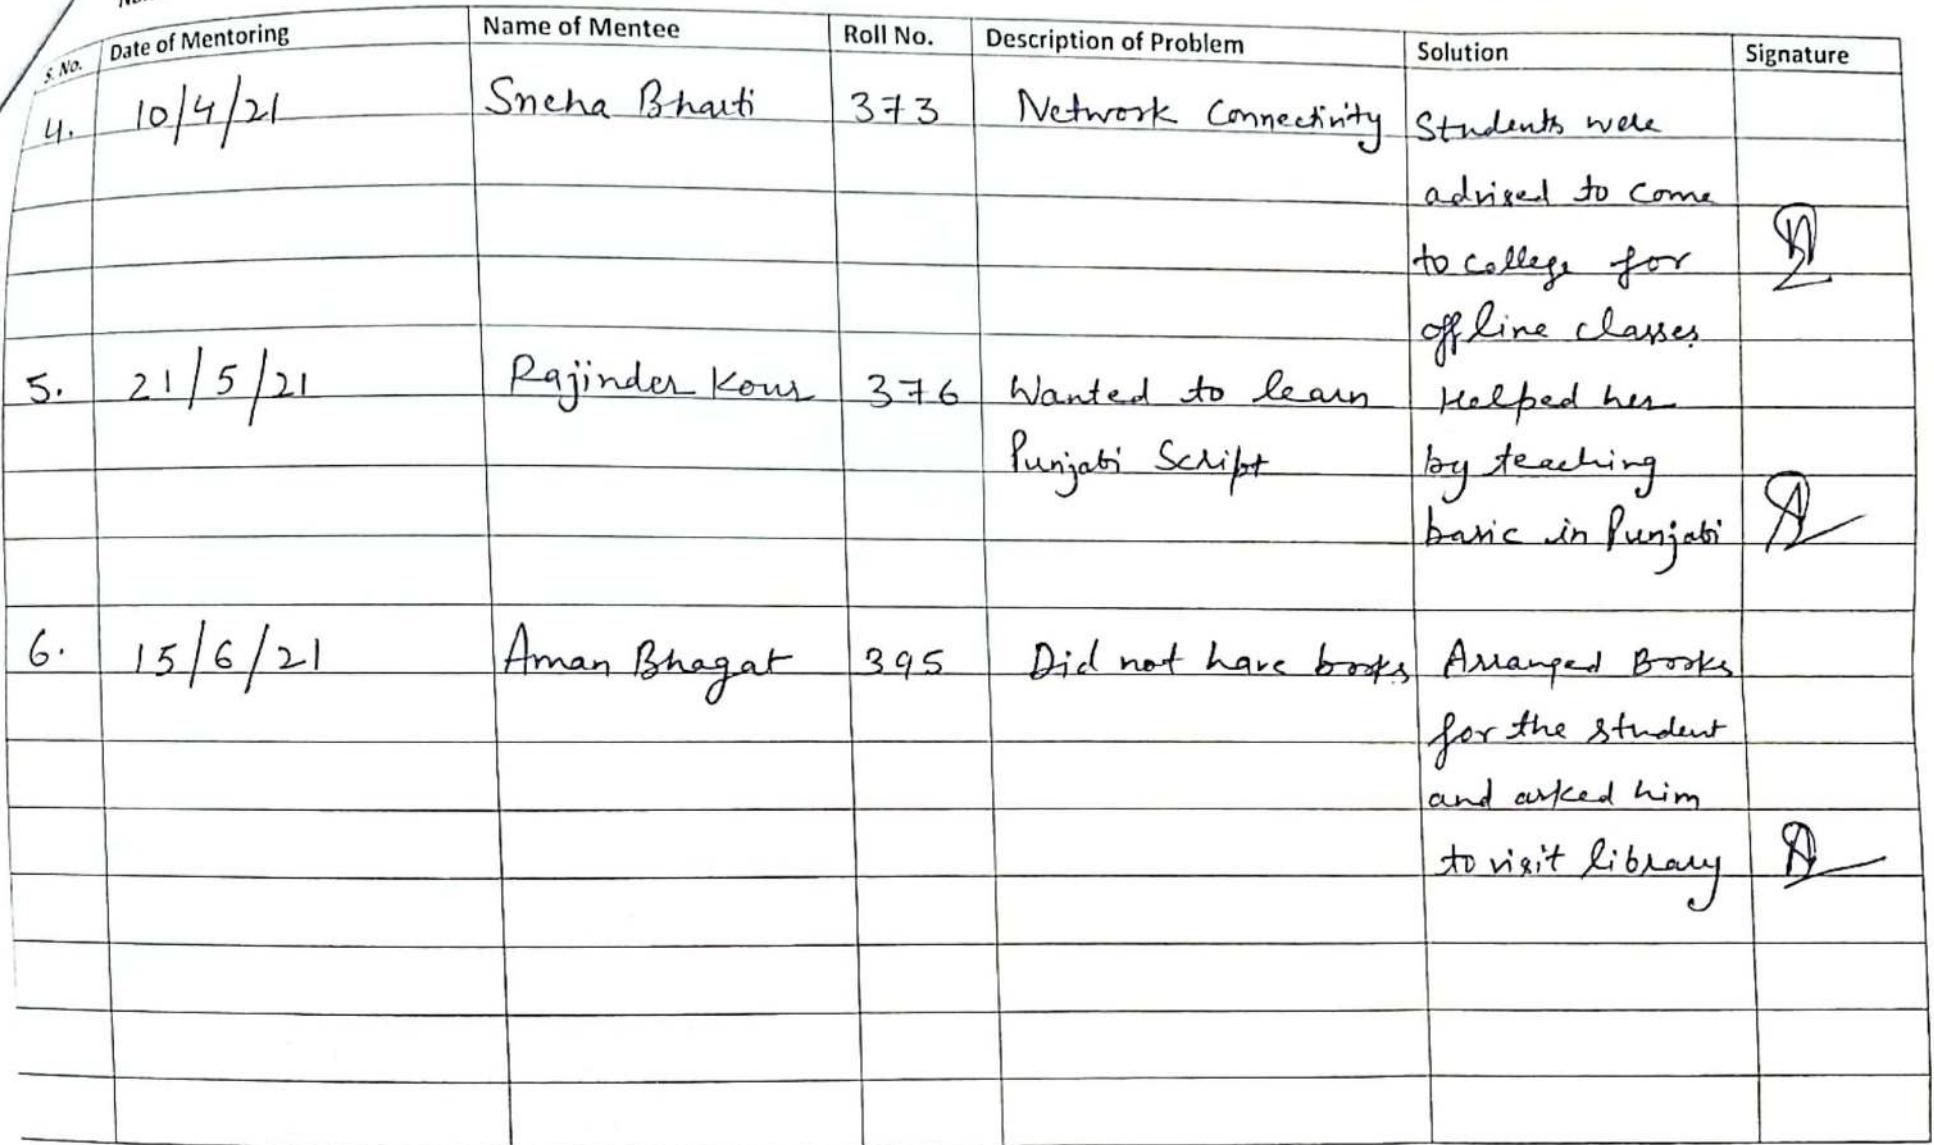 S. No. Date of Mentoring Name of Mentee Roll No. Description of Problem Solution Signature
4. 10/4/21 Sneha Bharti 373 Network Connectivity Students were
advised to come
to college for
offline classes.
5. 21/5/21 Rajinder Kour 376 Wanted to learn Helped her
Punjabi Script by teaching
basic in Punjabi
6. 15/6/21 Aman Bhagat 395 Did not have books Arranged Books
for the student
and asked him
to visit library